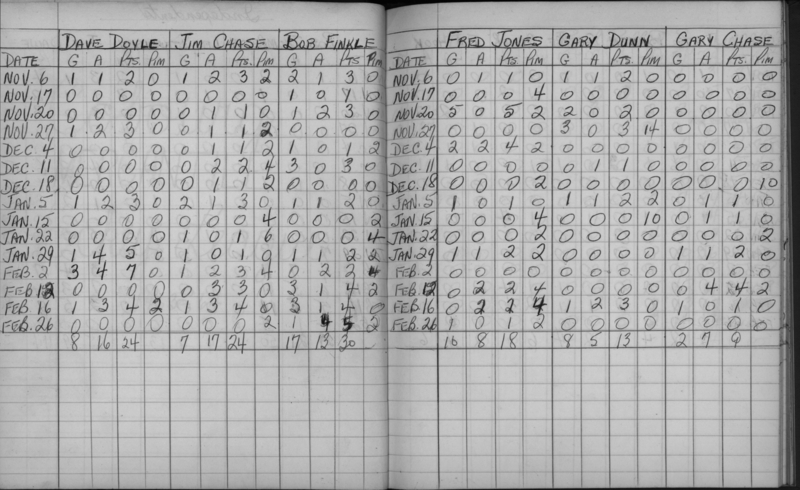 DAVE DOYLE JIM CHASE BOB FINKLE
DATE G A Pts. Pim G A Pts. Pim G A Pts Pim
NOV. 6 1 1 2 0 1 2 3 2 2 1 3 0
NOV. 17 0 0 0 0 0 0 0 0 1 0 1 0
NOV. 20 0 0 0 0 0 1 1 0 1 2 3 0
NOV. 27 1 2 3 0 0 1 1 2 0 0 0 0
DEC. 4 0 0 0 0 0 1 1 2 1 0 1 2
DEC. 11 0 0 0 0 0 2 2 4 3 0 3 0
DEC. 18 0 0 0 0 0 1 1 2 0 0 0 0
JAN. 5 1 2 3 0 2 1 3 0 1 1 2 0
JAN. 15 0 0 0 0 0 0 0 4 0 0 0 2
JAN. 22 0 0 0 0 1 0 1 6 0 0 0 4
JAN. 29 1 4 5 0 1 0 1 0 1 1 2 2
FEB. 2 3 4 7 0 1 2 3 4 0 2 2 4
FEB 12 0 0 0 0 0 3 3 0 3 1 4 2
FEB. 16 1 3 4 2 1 3 4 0 3 1 4 0
FEB. 26 0 0 0 0 0 0 0 2 1 4 5 2
8 16 24 7 17 24 17 13 30
FRED JONES GARY DUNN GARY CHASE
DATE G A Pts. Pim G A Pts. Pim G A Pts. Pim
NOV. 6 0 1 1 0 1 1 2 0 0 0 0 0
NOV. 17 0 0 0 4 0 0 0 0 0 0 0 0
NOV. 20 5 0 5 2 2 0 2 0 0 0 0 0
NOV. 27 0 0 0 0 3 0 3 14 0 0 0 0
DEC. 4 2 2 4 2 0 0 0 0 0 0 0 0
DEC. 11 0 0 0 0 0 1 1 0 0 0 0 0
DEC. 18 0 0 0 2 0 0 0 0 0 0 0 10
JAN. 5 1 0 1 0 1 1 2 2 0 1 1 0
JAN. 15 0 0 0 4 0 0 0 10 0 1 1 0
JAN. 22 0 0 0 2 0 0 0 0 0 0 0 2
JAN. 29 1 1 2 2 0 0 0 0 1 1 2 0
FEB. 2 0 0 0 0 0 0 0 0 0 0 0 0
FEB. 12 0 2 2 4 0 0 0 0 0 4 4 2
FEB. 16 0 2 2 4 1 2 3 0 1 0 1 0
FEB. 26 1 0 1 2 0 0 0 0 0 0 0 0
10 8 18 8 5 13 2 7 9